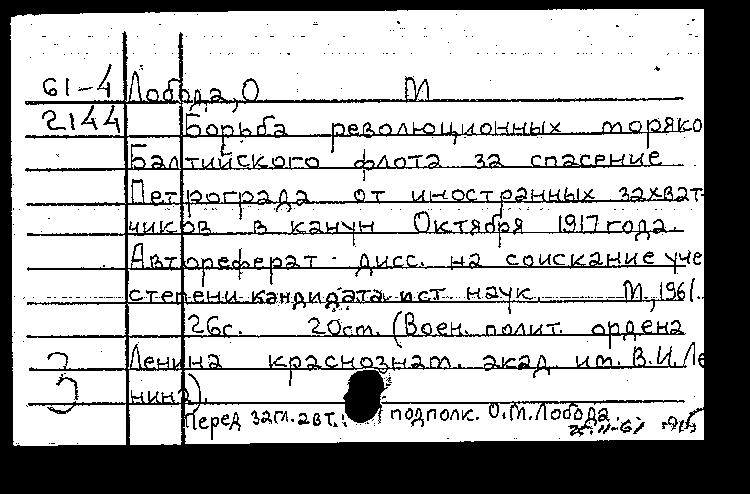 61-4 Лобода, О М
2144 Борьба революционных моряко
Балтийского флота за спасение
Петрограда от иностранных захват-
чиков в канун Октября 1917 года.
Автореферат дисс. на соискание уче
степени кандидата ист наук. М., 1961.
26с. 20см. (Воен. полит. ордена
3 Ленина краснознам. акад. им. В.И. Ле
нина).
Перед загл. авт.: подполк. О.М. Лобода.